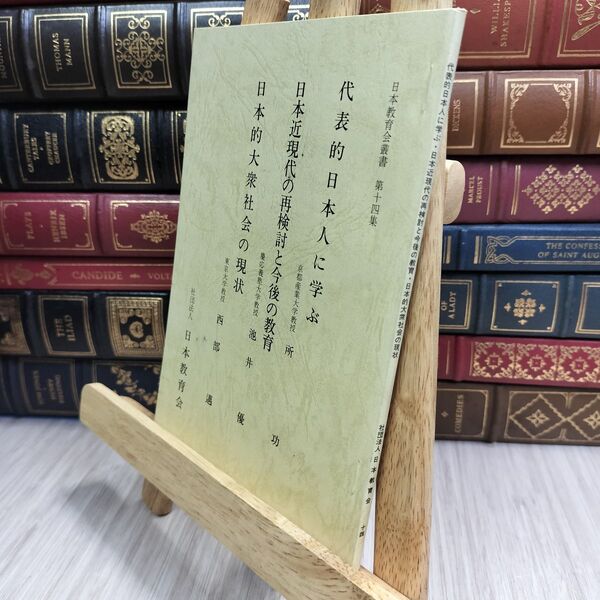 日本教育会叢書 第十四集
代表的日本人に学ぶ
京都産業大学教授 所 功
日本近現代の再検討と今後の教育
慶応義塾大学教授 池井 優
日本的大衆社会の現状
東京大学教授 西部 邁
社団法人 日本教育会
代表的日本人に学ぶ・日本近現代の再検討と今後の教育・日本的大衆社会の現状
社団法人 日本教育会
十四
THOMAS MANN
CANTERBURY TALES
GEOFFREY CHAUCER
PLAYS
HENRIK IBSEN
CANDIDE
VOLTA
THE ILIAD
WILLIAM
DICKENS
MARCEL PROUST
THE CONFESS
OF SAINT AUGU
OF A LADY
COMEDIES